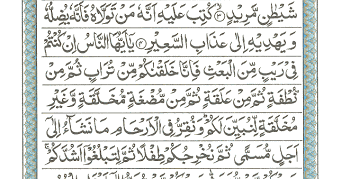 شَيْطٰنٍ مَّرِيْدٍ ۙ﴿۳﴾ كُتِبَ عَلَيْهِ اَنَّهٗ مَنْ تَوَلَّاهُ فَاَنَّهٗ يُضِلُّهٗ
وَ يَهْدِيْهِ اِلٰى عَذَابِ السَّعِيْرِ ﴿۴﴾ يٰۤاَيُّهَا النَّاسُ اِنْ كُنْتُمْ
فِيْ رَيْبٍ مِّنَ الْبَعْثِ فَاِنَّا خَلَقْنٰكُمْ مِّنْ تُرَابٍ ثُمَّ مِنْ
نُّطْفَةٍ ثُمَّ مِنْ عَلَقَةٍ ثُمَّ مِنْ مُّضْغَةٍ مُّخَلَّقَةٍ وَّغَيْرِ
مُخَلَّقَةٍ لِّنُبَيِّنَ لَكُمْ ؕ وَنُقِرُّ فِي الْاَرْحَامِ مَا نَشَآءُ اِلٰۤى
اَجَلٍ مُّسَمًّى ثُمَّ نُخْرِجُكُمْ طِفْلًا ثُمَّ لِتَبْلُغُوْۤا اَشُدَّكُمْ ۚ